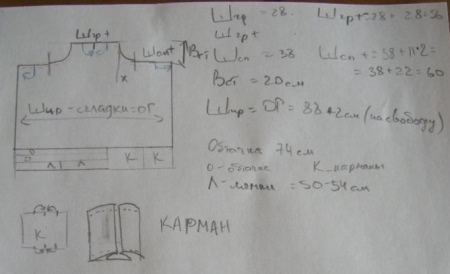 Шгр+
Вст
Шсп+
x
Шир-складки=ОГ
о
Л Л К К
К
КАРМАН
Шгр = 28. Шгр+=28+28=56
Шгр+
Шсп = 38 Шсп+=38+11*2=
=38+22=60
Вст = 20см
Шир= ОГ= 88+2см(на свободу)
Обтачка 74см
о-обтачка К-карманы
Л-лямки =50-54см